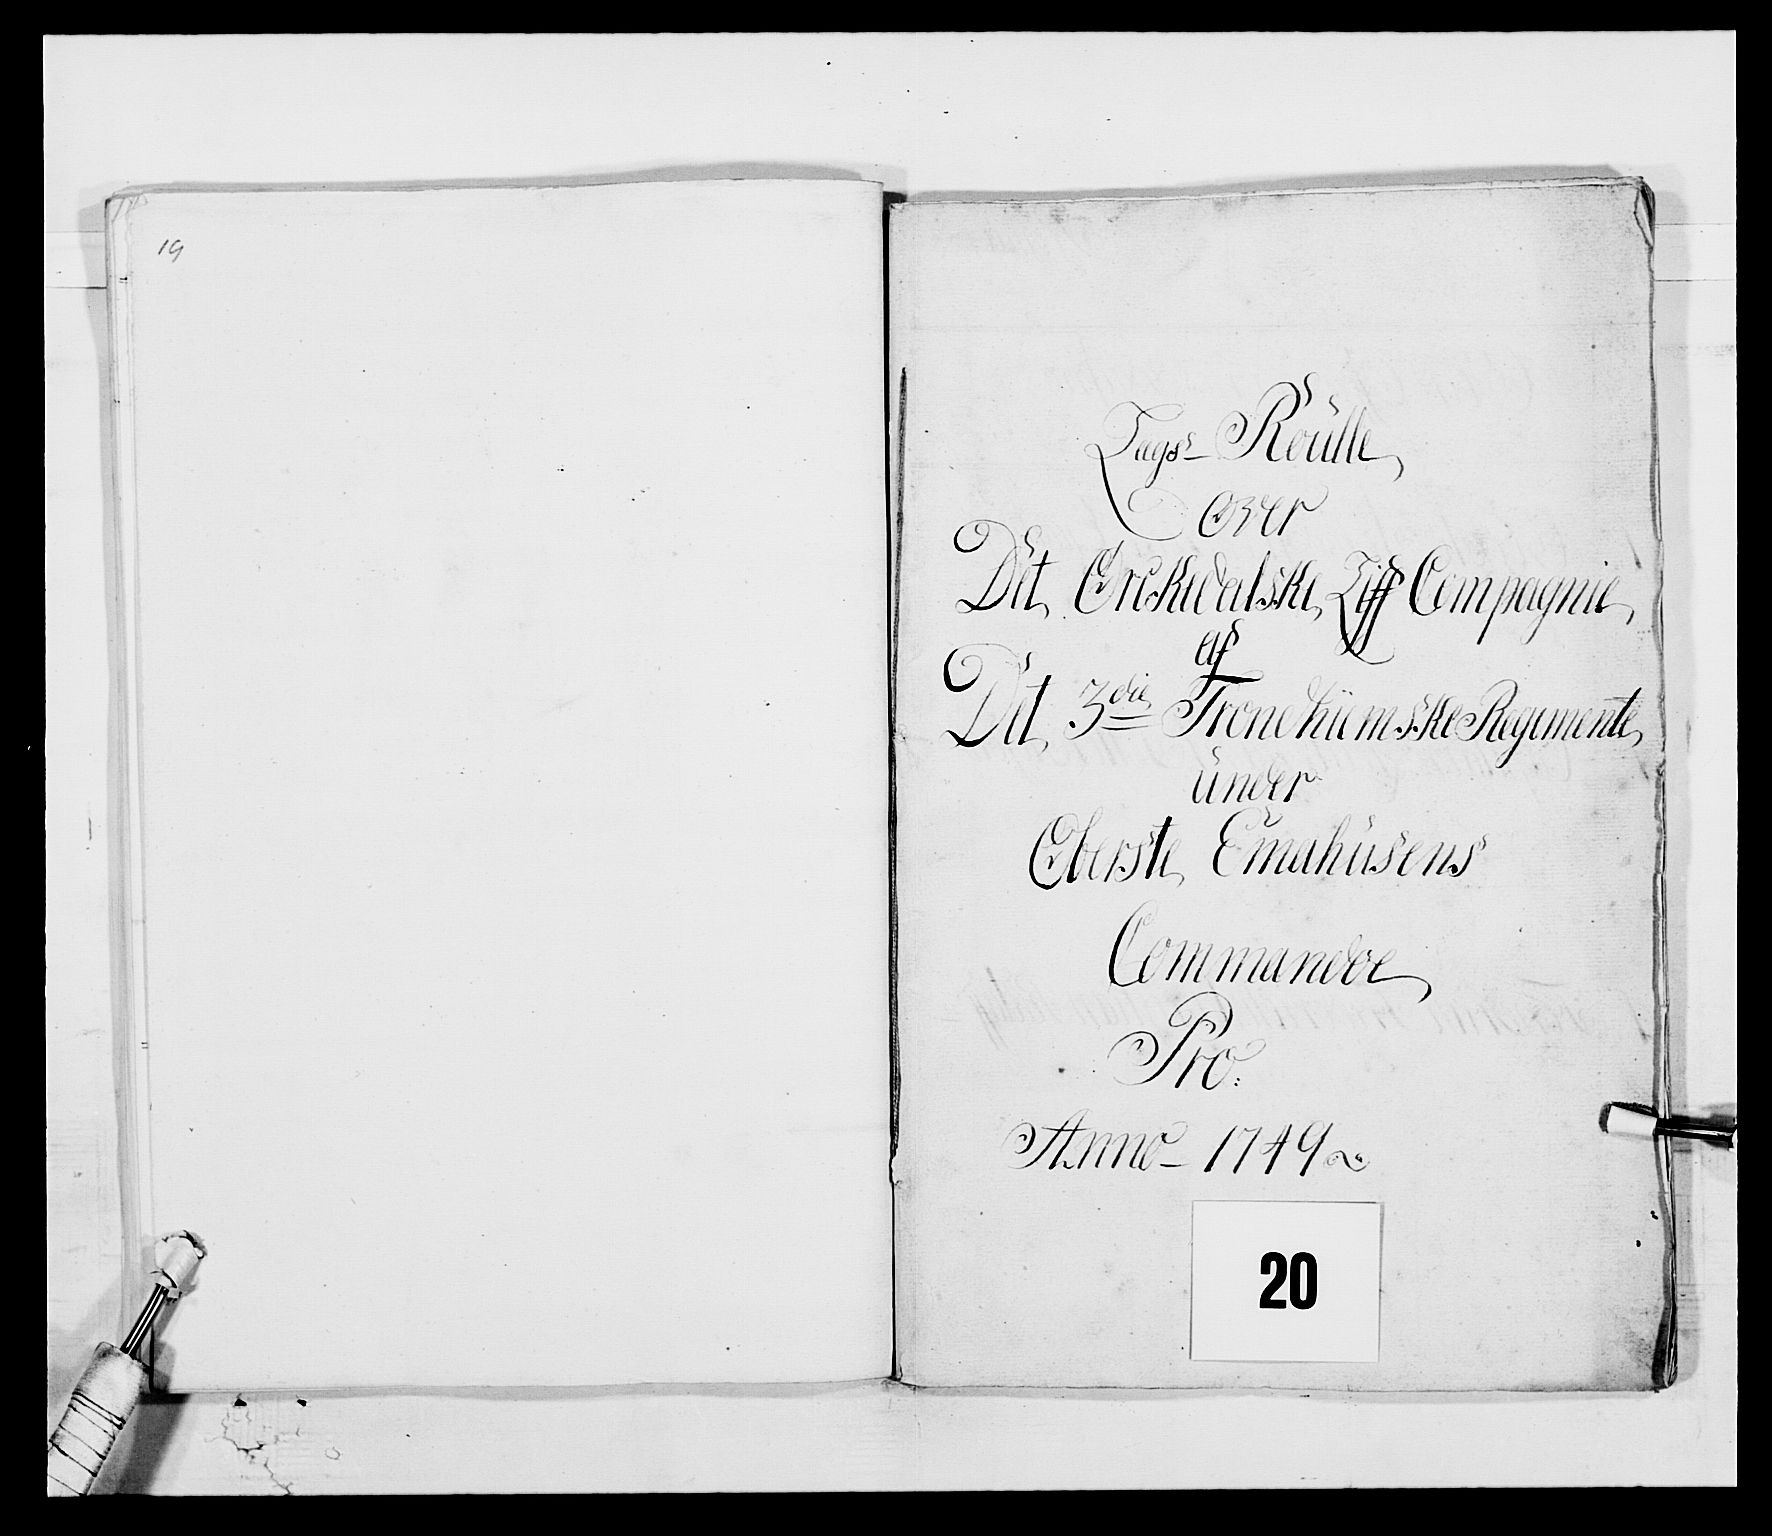 19
Lags- Roülle
over
Det Orckedalske Liff Compagnie
af
Det 3die Trondhiemske Regimente
ünder
Oberste Emahüsens
Commandoe
Pro:
Anno- 1749
20